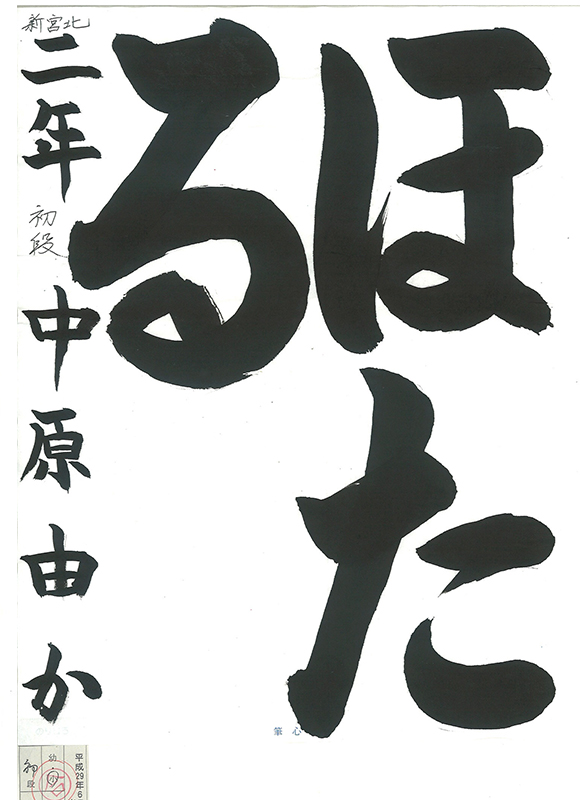 ほた
る
新宮北
二年 初段 中原由か
心筆
平成29年6
幼・小
初段